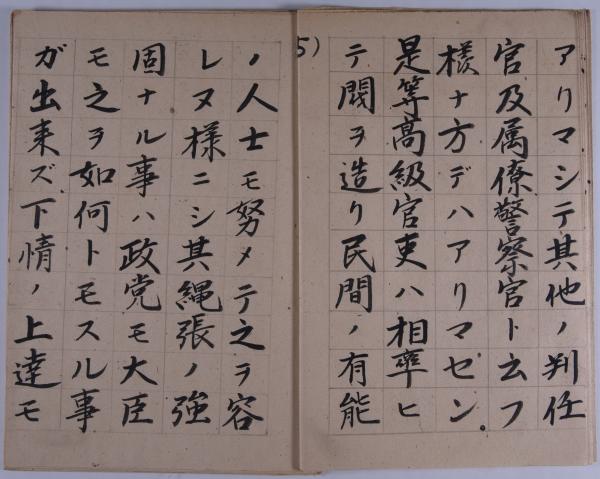 5)
アリマシテ其他ノ判任
官及属僚警察官ト云フ
様ナ方デハアリマセン。
是等高級官吏ハ相率ヒ
テ閥ヲ造リ民間ノ有能
ノ人士モ努メテ之ヲ容
レヌ様ニシ其縄張ノ強
固ナル事ハ政党モ大臣
モ之ヲ如何トモスル事
ガ出来ズ下情ノ上達モ